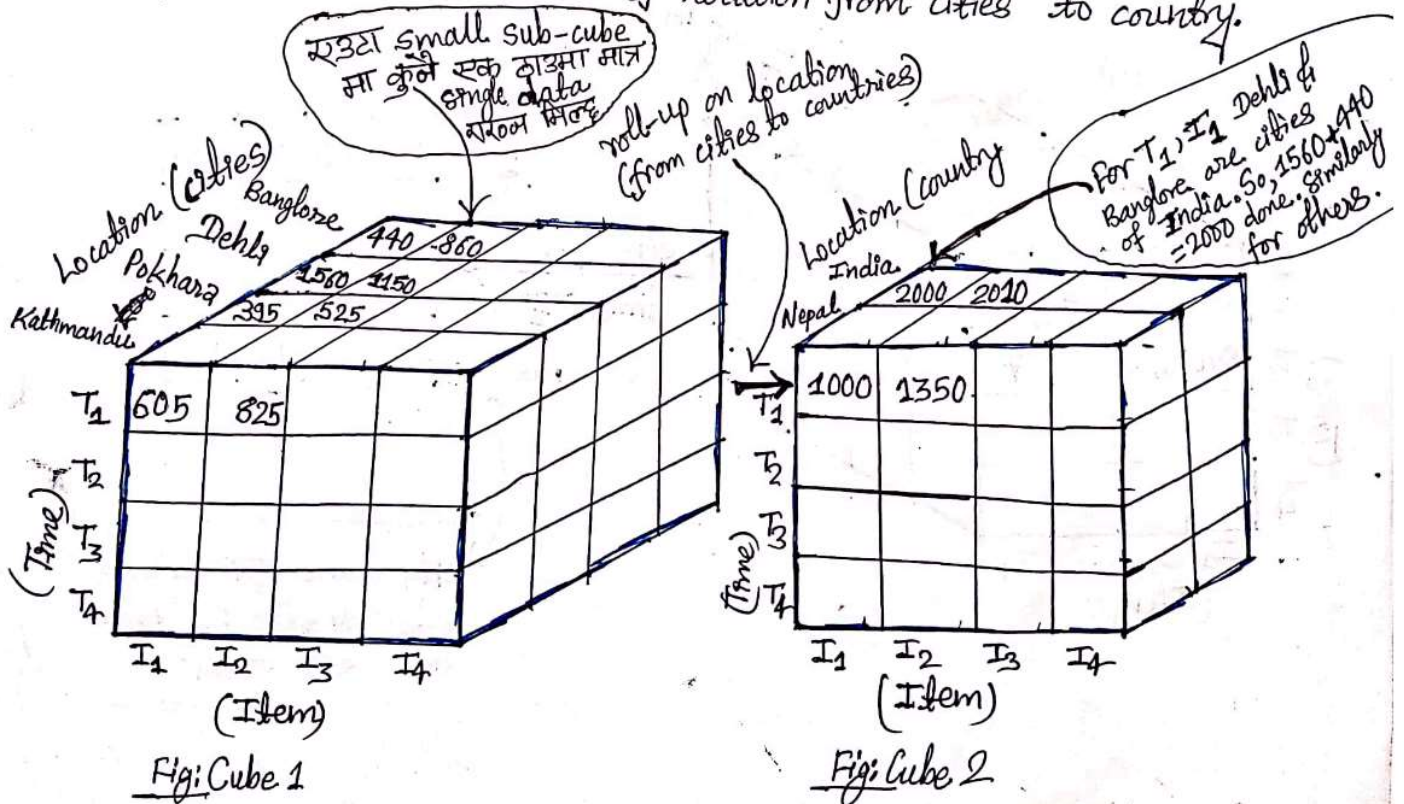 location from cities to country.
एउटा small sub-cube
मा कुनै एक ठाउमा मात्र
single data
राख्न मिल्छ
roll-up on location
(from cities to countries)
For T1, I1 Dehli &
Banglore are cities
of India. So, 1560+440
=2000 done. similarly
for others.
Location (cities)
Banglore
Dehli
Pokhara
Kathmandu
440 860
1560 1150
395 525
605 825
T1
T2
T3
T4
(Time)
I1 I2 I3 I4
(Item)
Fig: Cube 1
Location (country
India
Nepal
2000 2010
1000 1350
T1
T2
T3
T4
(Time)
I1 I2 I3 I4
(Item)
Fig: Cube 2